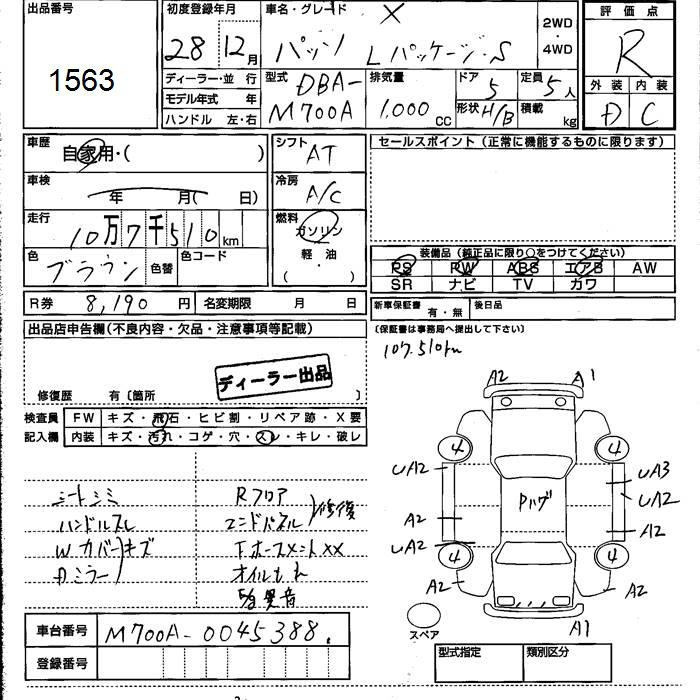 出品番号
1563
初度登録年月
28 12月
車名・グレード
パッソ Lパッケージ・S
2WD
・
4WD
評価点
R
外装 内装
D C
ディーラー・並行
モデル年式 年
ハンドル 左・右
型式
DBA-
M700A
排気量
1,000 cc
ドア
5
定員
5人
形状 H/B
積載 kg
車歴
自家用・( )
シフト
AT
セールスポイント (正常に機能するものに限ります)
車検
年 月( 日)
冷房
A/C
走行
10万7千510km
燃料
ガソリン
軽油
( ・ )
色
ブラウン
色替
色コード
装備品 (純正品に限り○をつけてください)
PS PW ABS エアB AW
SR ナビ TV カワ
R券 8,190円
名変期限 月 日
新車保証書
有・無
後日品
(保証書は事務局へ提出して下さい)
107,510km
出品店申告欄(不良内容・欠品・注意事項等記載)
ディーラー出品
修復歴 有〔箇所 〕
検査員
記入欄
FW キズ・飛石・ヒビ割・リペア跡・X要
内装 キズ・汚れ・コゲ・穴・スレ・キレ・破レ
シートシミ
ハンドルスレ
Wカバーキズ
Dミラー
Rフロア
エンドパネル
修復
FホースメントXX
オイルもれ
異音
A2 A1
4 4
UA2 UA3
UA2
A2 A2
UA2
4 4
A2 A2
A1
Pハグ
スペア
車台番号 M700A-0045388
登録番号
型式指定 類別区分